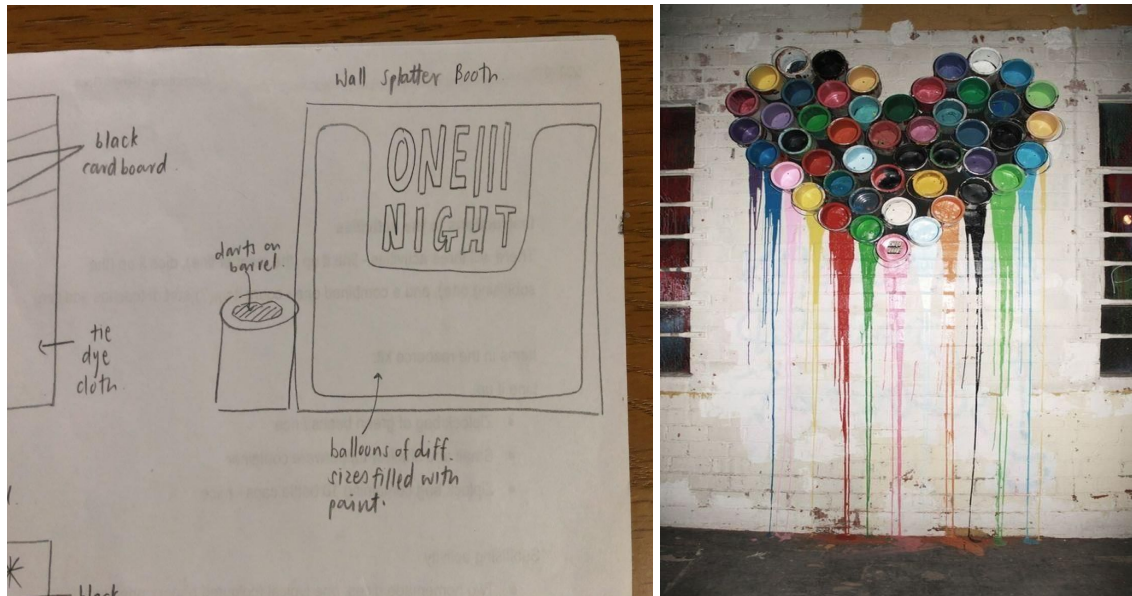 Wall Splatter Booth
black
cardboard.
ONE
NIGHT
darts on
barrel
tie
dye
cloth.
balloons of diff.
sizes filled with
paint.
black